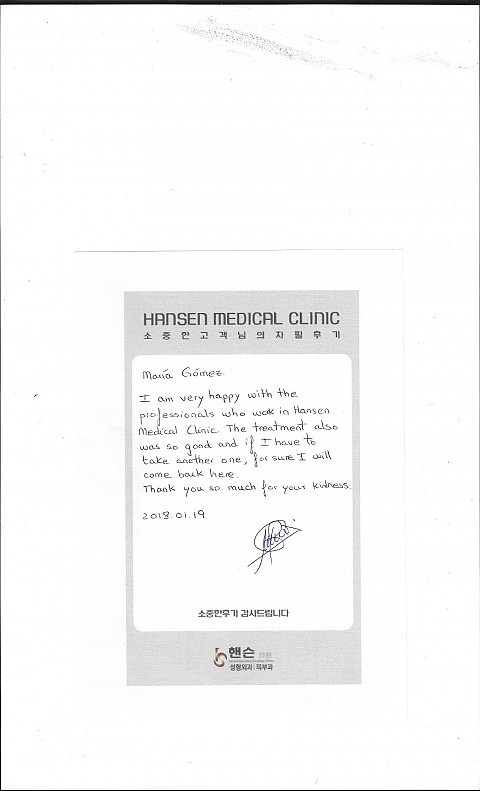 HANSEN MEDICAL CLINIC
소중한고객님의자필후기
María Gómez
I am very happy with the
professionals who work in Hansen
Medical Clinic. The treatment also
was so good and if I have to
take another one, for sure I will
come back here.
Thank you so much for your kidness.
2018.01.19
소중한후기 감사드립니다
핸슨
성형외과 피부과